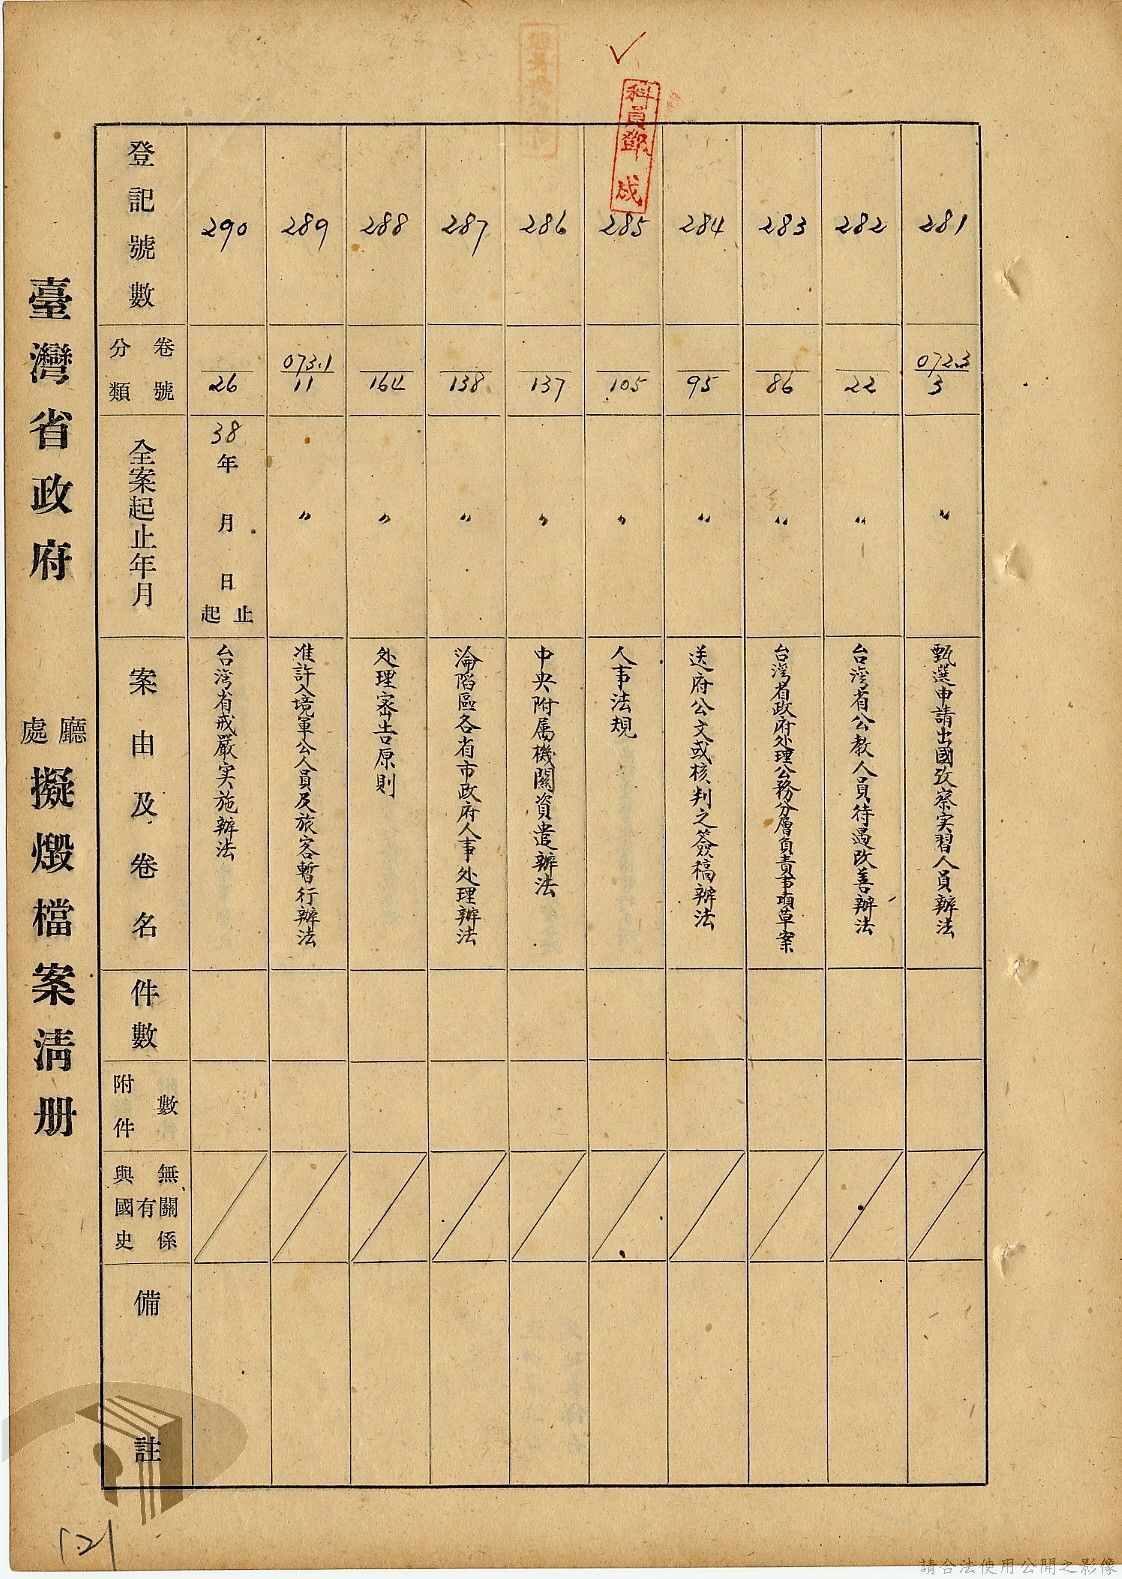 臺灣省政府 廳處 擬燬檔案清册
科員鄧成
登記號數
卷號 分類
全案起止年月
案由及卷名
件數
附件數
與國史有無關係
備註
281
072.3
3
〃
甄選申請出國攷察实習人員辦法
282
22
〃
台灣省公教人員待遇改善辦法
283
86
〃
台灣省政府处理公務分層負責事項草案
284
95
〃
送府公文或核判之簽稿辦法
285
105
〃
人事法規
286
137
〃
中央附属機關資遣辦法
287
138
〃
淪陷區各省市政府人事处理辦法
288
164
〃
处理密告原則
289
073.1
11
〃
准許入境軍公人員及旅客暫行辦法
290
26
38年 月 日 起止
台灣省戒嚴实施辦法
121
請合法使用公開之影像